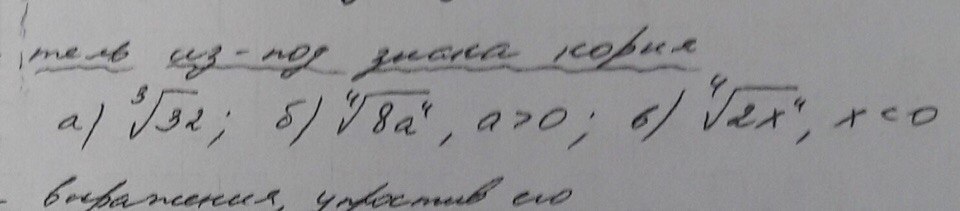 тель из-под знака корня
а) ∛32; б) ∜8a⁴, a>0; в) ∜2x⁴, x<0
выражения, упростив его